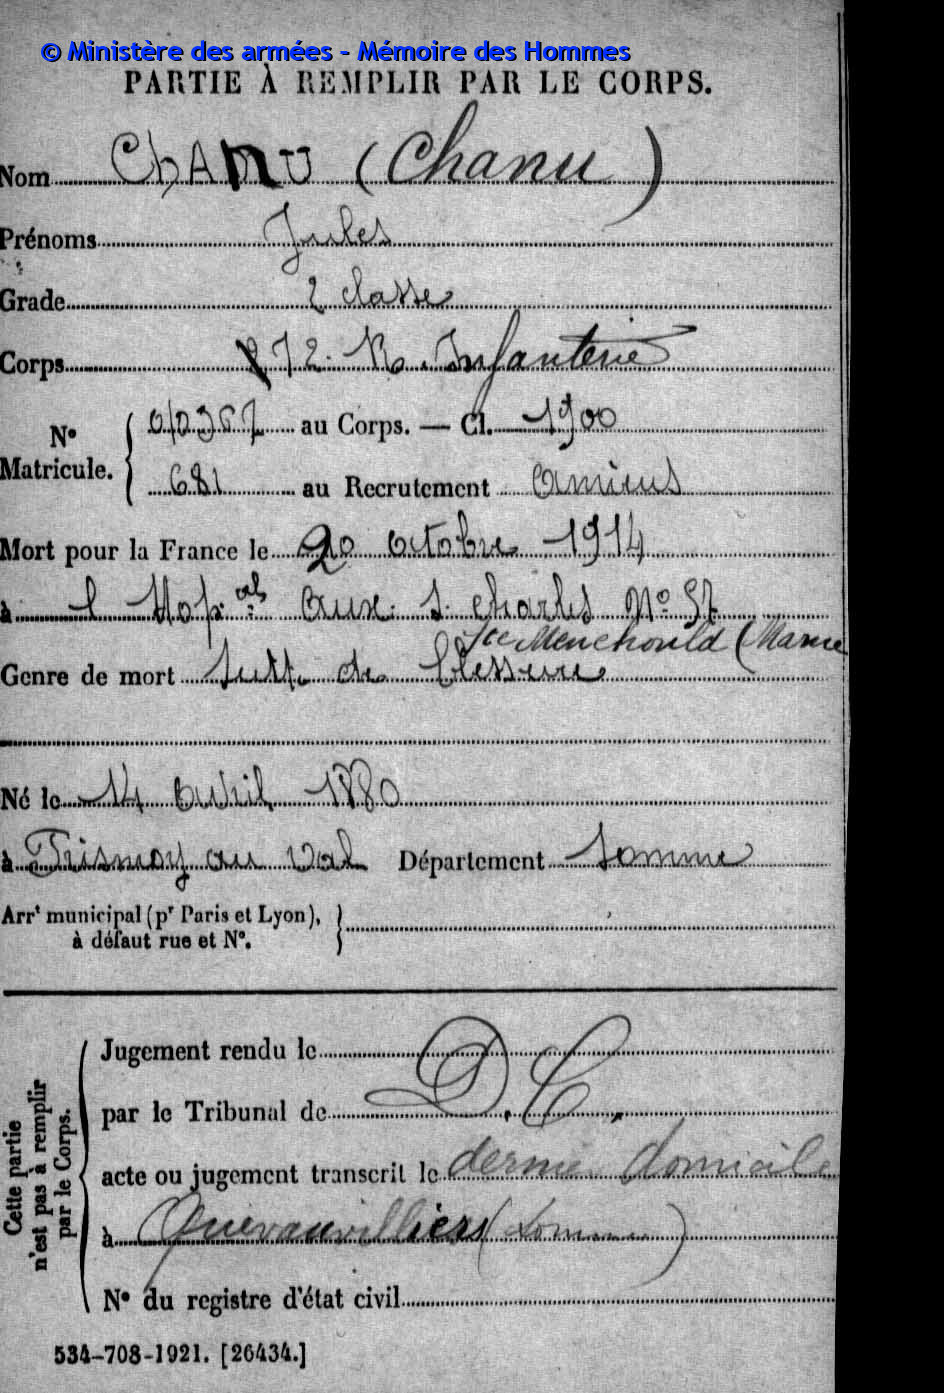 © Ministère des armées - Mémoire des Hommes
PARTIE À REMPLIR PAR LE CORPS.
Nom CHANU (Chanu)
Prénoms Jules
Grade 2 classe
Corps 72. R. Infanterie
N° Matricule. 010367 au Corps. — Cl. 1900
681 au Recrutement Amiens
Mort pour la France le 20 octobre 1914
à l Hop.al Aux. S. Charles N° 57
Ste Menehould (Marne
Genre de mort Suite de Blessure
Né le 14 Avril 1880
à Frismoy au Val Département Somme
Arrt municipal (pr Paris et Lyon),
à défaut rue et N°.
Cette partie n'est pas à remplir par le Corps.
Jugement rendu le
par le Tribunal de D. C.
acte ou jugement transcrit le dernier domicile
à Quevauvillers (Somme)
N° du registre d'état civil
534-708-1921. [26434.]